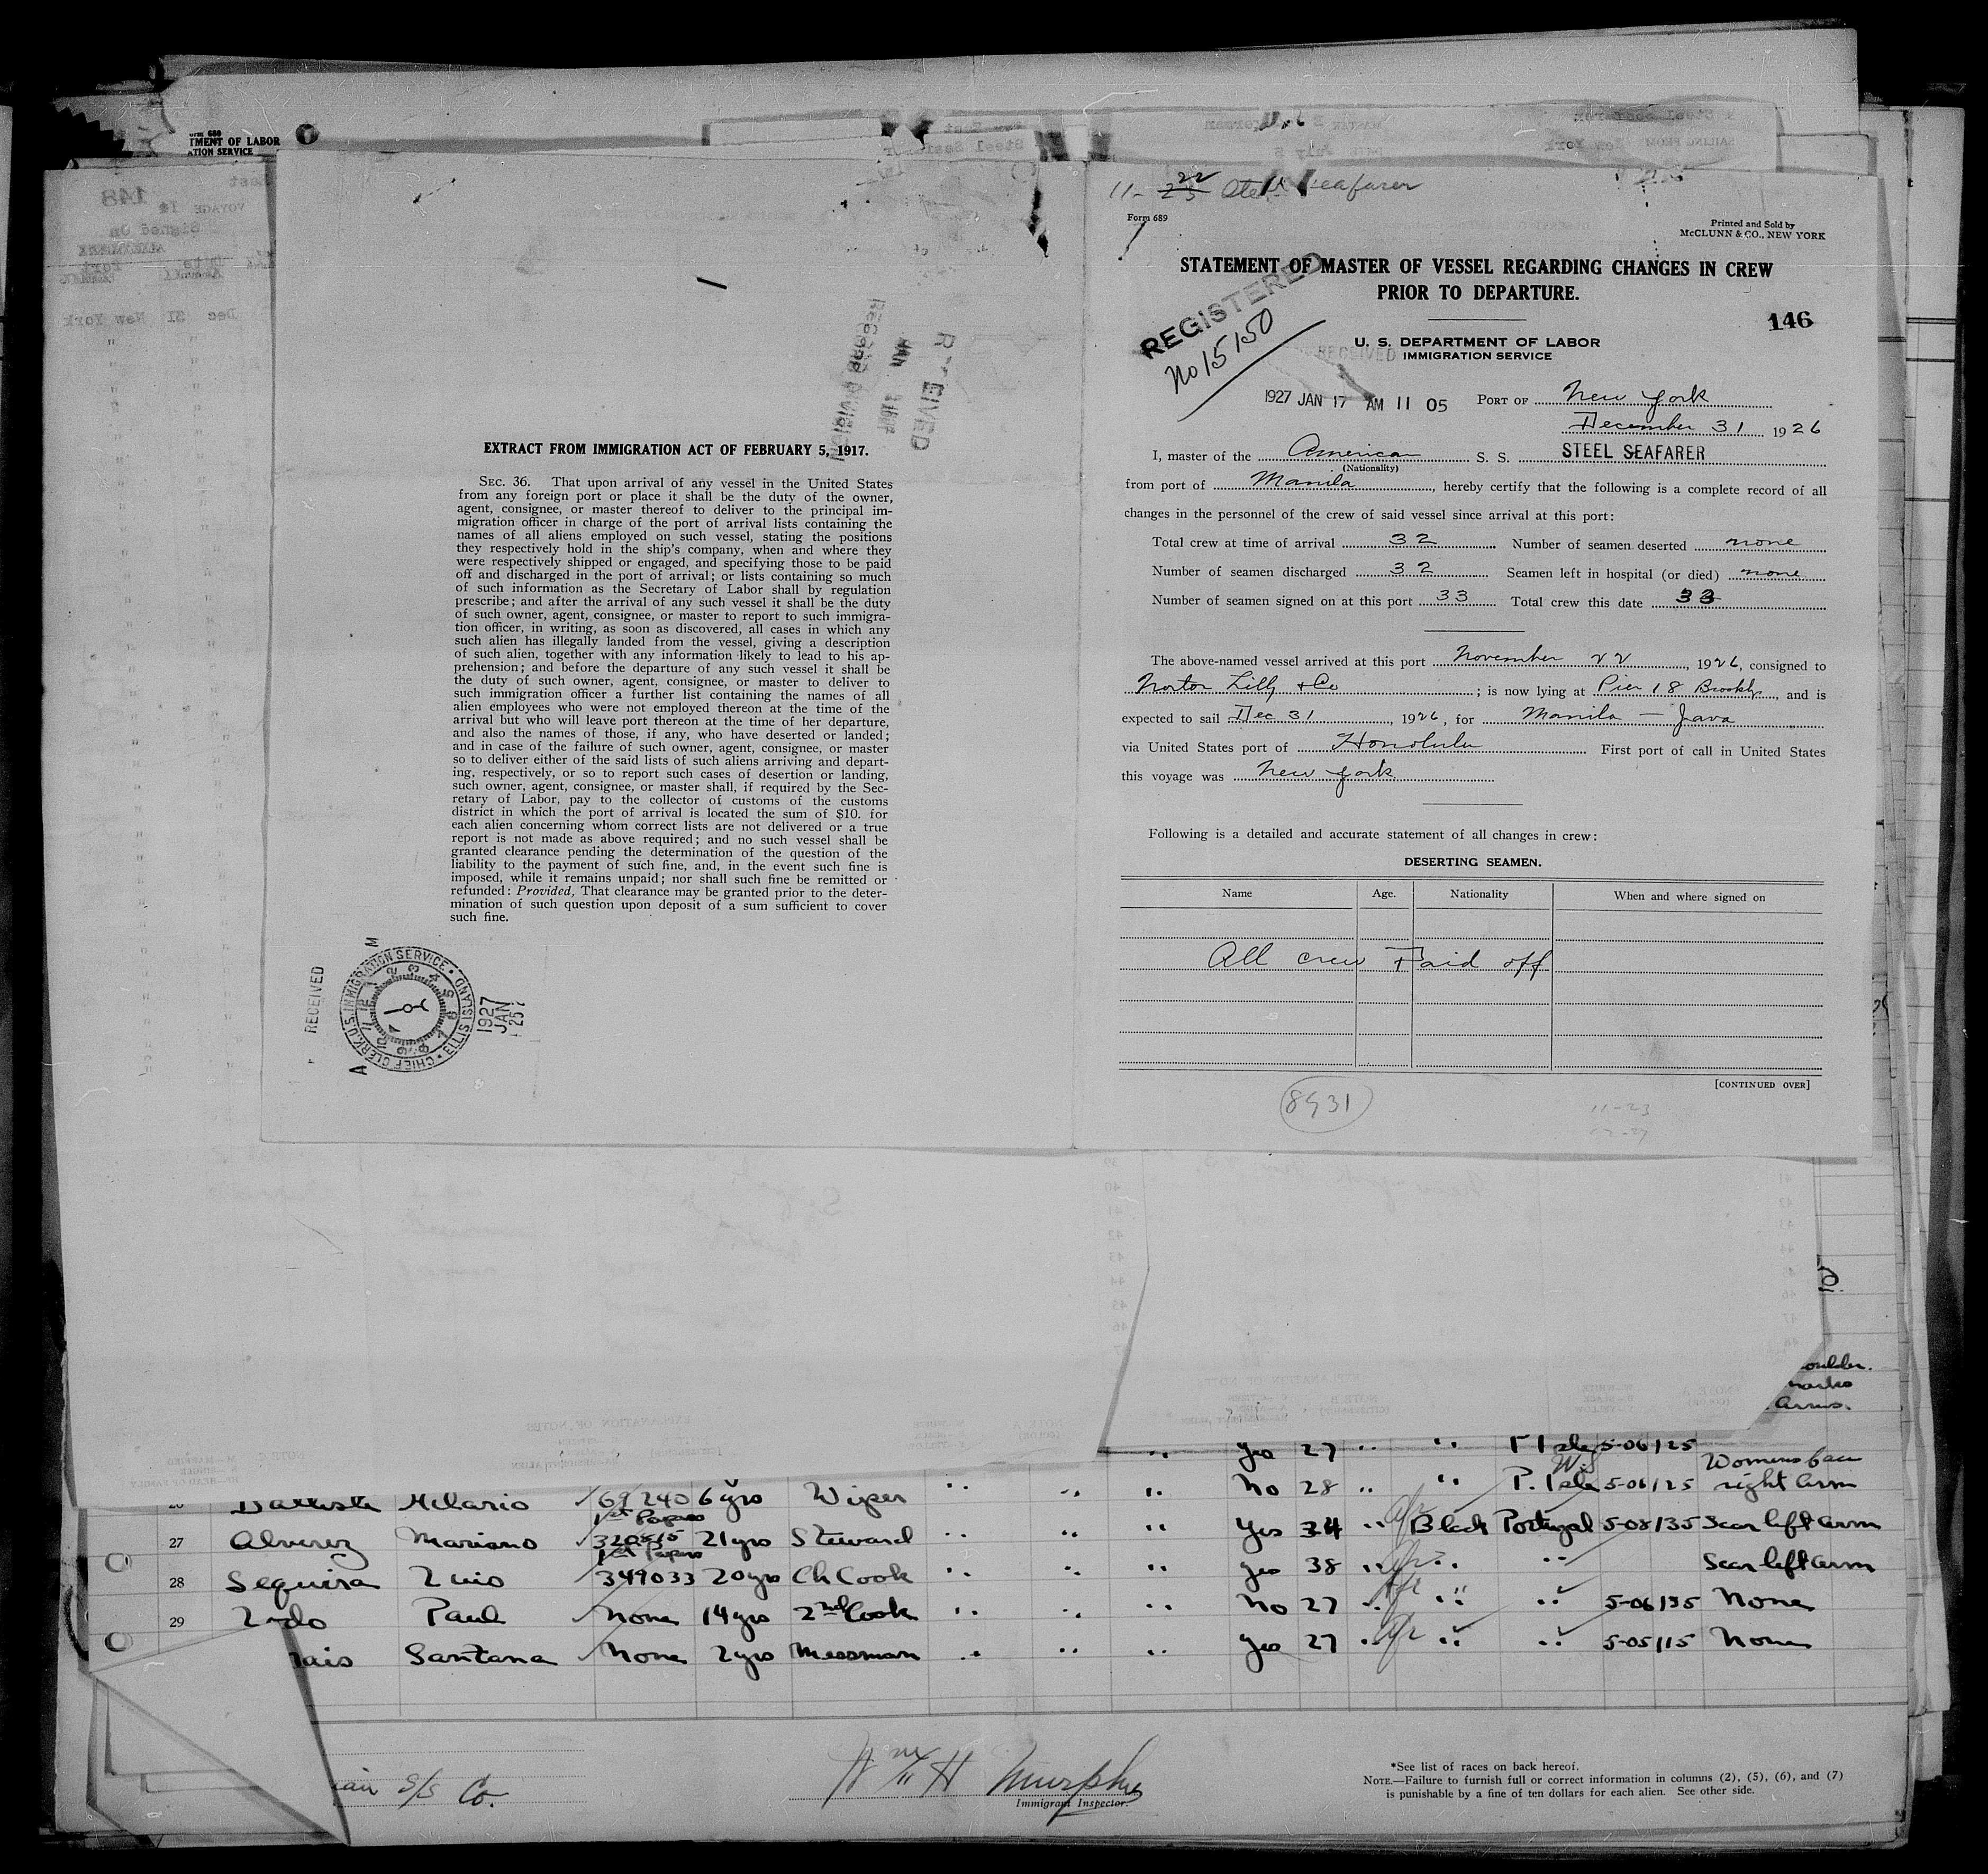 Form 689
TMENT OF LABOR
ATION SERVICE
148
EXTRACT FROM IMMIGRATION ACT OF FEBRUARY 5, 1917.
SEC. 36. That upon arrival of any vessel in the United States
from any foreign port or place it shall be the duty of the owner,
agent, consignee, or master thereof to deliver to the principal im-
migration officer in charge of the port of arrival lists containing the
names of all aliens employed on such vessel, stating the positions
they respectively hold in the ship's company, when and where they
were respectively shipped or engaged, and specifying those to be paid
off and discharged in the port of arrival; or lists containing so much
of such information as the Secretary of Labor shall by regulation
prescribe; and after the arrival of any such vessel it shall be the duty
of such owner, agent, consignee, or master to report to such immigra-
tion officer, in writing, as soon as discovered, all cases in which any
such alien has illegally landed from the vessel, giving a description
of such alien, together with any information likely to lead to his ap-
prehension; and before the departure of any such vessel it shall be
the duty of such owner, agent, consignee, or master to deliver to
such immigration officer a further list containing the names of all
alien employees who were not employed thereon at the time of the
arrival but who will leave port thereon at the time of her departure,
and also the names of those, if any, who have deserted or landed;
and in case of the failure of such owner, agent, consignee, or master
so to deliver either of the said lists of such aliens arriving and depart-
ing, respectively, or so to report such cases of desertion or landing,
such owner, agent, consignee, or master shall, if required by the Sec-
retary of Labor, pay to the collector of customs of the customs
district in which the port of arrival is located the sum of $10. for
each alien concerning whom correct lists are not delivered or a true
report is not made as above required; and no such vessel shall be
granted clearance pending the determination of the question of the
liability to the payment of such fine, and, in the event such fine is
imposed, while it remains unpaid; nor shall such fine be remitted or
refunded: Provided, That clearance may be granted prior to the deter-
mination of such question upon deposit of a sum sufficient to cover
such fine.
RECEIVED
CHIEF CLERK, U.S. IMMIGRATION SERVICE • ELLIS ISLAND
1927
JAN
25
11-22 Steel Seafarer
Form 689
Printed and Sold by
McCLUNN & CO., NEW YORK
STATEMENT OF MASTER OF VESSEL REGARDING CHANGES IN CREW
PRIOR TO DEPARTURE.
146
REGISTERED
No 15150
U. S. DEPARTMENT OF LABOR
IMMIGRATION SERVICE
RECEIVED
1927 JAN 17 AM 11 05 PORT OF New York
December 31 1926
I, master of the American S. S. STEEL SEAFARER
(Nationality)
from port of Manila, hereby certify that the following is a complete record of all
changes in the personnel of the crew of said vessel since arrival at this port:
Total crew at time of arrival 32 Number of seamen deserted none
Number of seamen discharged 32 Seamen left in hospital (or died) none
Number of seamen signed on at this port 33 Total crew this date 33
The above-named vessel arrived at this port November 22, 1926, consigned to
Norton Lilly & Co; is now lying at Pier 18 Brooklyn, and is
expected to sail Dec 31, 1926, for Manila — Java
via United States port of Honolulu First port of call in United States
this voyage was New York
Following is a detailed and accurate statement of all changes in crew:
DESERTING SEAMEN.
Name Age. Nationality When and where signed on
All crew Paid off
[CONTINUED OVER]
8931
11-23
oulder.
marks
Arms.
" yes 27 " " P Isle 5-06 125
Womens face
Hilario 69240 6yrs Wiper " " " No 28 " " P. Isle 5-06 125 right arm
1st Papers
27 Alverez Mariano 320815 21yrs Steward " " " Yes 34 " Black Portugal 5-08 135 Scar left arm
1st Papers
28 Sequira Luis 349033 20yrs Ch Cook " " " yes 38 " " " Scar left arm
29 Paul None 14yrs 2nd Cook " " " No 27 " " " 5-06 135 None
Santana None 2yrs Messman " " " Yes 27 " " " 5-05 115 None
ian S/S Co.
Wm H Murphy
Immigrant Inspector.
*See list of races on back hereof.
NOTE.—Failure to furnish full or correct information in columns (2), (5), (6), and (7)
is punishable by a fine of ten dollars for each alien. See other side.